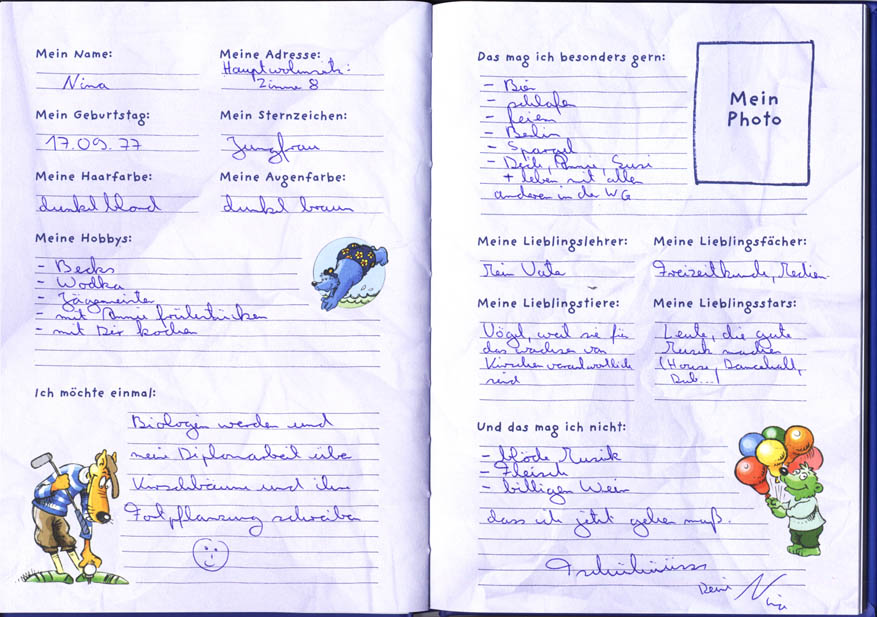 Mein Name:
Nina
Meine Adresse:
Hauptwohnsitz:
Zimmer 8
Mein Geburtstag:
17.09.77
Mein Sternzeichen:
Jungfrau
Meine Haarfarbe:
dunkelblond
Meine Augenfarbe:
dunkel braun
Meine Hobbys:
- Becks
- Wodka
- Jägermeister
- mit Annie frühstücken
- mit Dir kochen
Ich möchte einmal:
Biologin werden und
meine Diplomarbeit über
Kirschbäume und ihre
Fortpflanzung schreiben
Das mag ich besonders gern:
- Bier
- schlafen
- feiern
- Berlin
- Spargel
- Dich, Annie, Susi
+ leben mit allen
anderen in der WG
Mein Photo
Meine Lieblingslehrer:
Mein Vater
Meine Lieblingsfächer:
Freizeitkunde, Medien
Meine Lieblingstiere:
Vögel, weil sie für
das wachsen von
Kirschen verantwortlich
sind
Meine Lieblingsstars:
Leute, die gute
Musik machen
(House, Dancehall,
Dub...)
Und das mag ich nicht:
- blöde Musik
- Fleisch
- billigen Wein
dass ich jetzt gehen muß.
Deine Nina